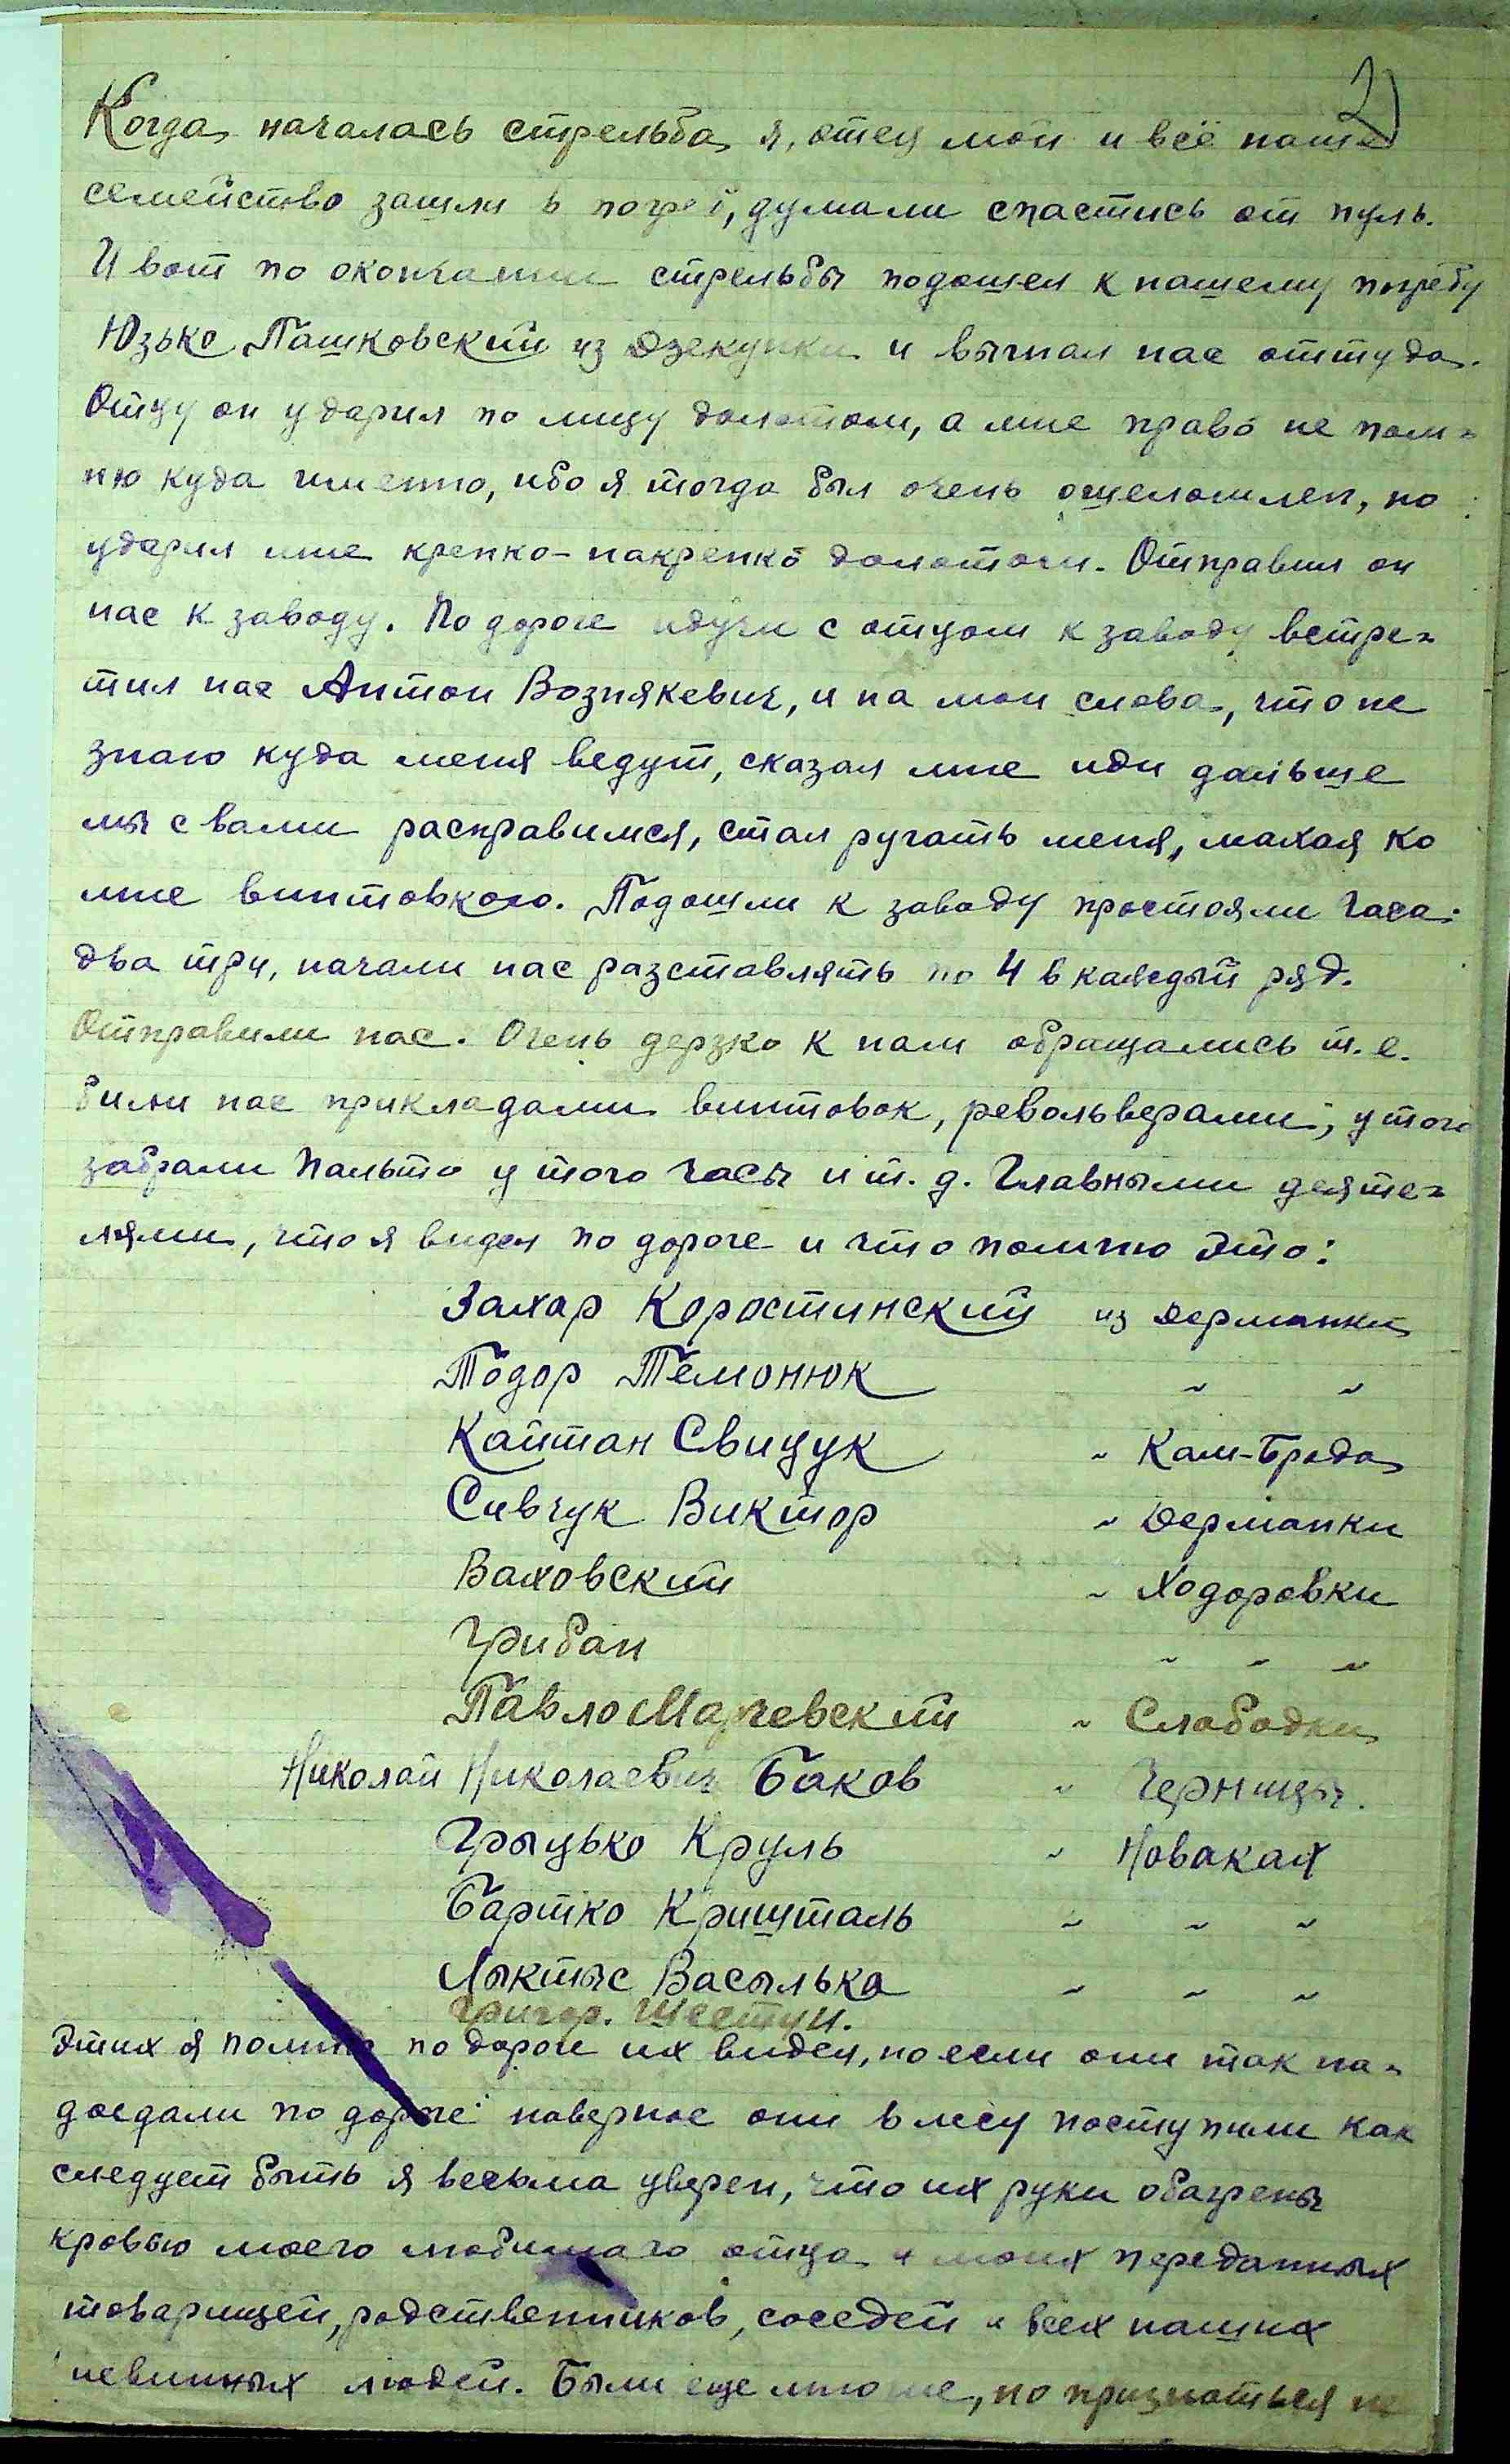 2)
Когда началась стрельба я, отец мой и всё наше
семейство зашли в погреб, думали спастись от пуль.
И вот по окончании стрельбы подошел к нашему погребу
Юзько Пашковский из Дзекунки и выгнал нас оттуда.
Отцу он ударил по лицу долотом, а мне право не пом=
ню куда именно, ибо я тогда был очень ошеломлен, но
ударил мне крепко-накрепко долотом. Отправил он
нас к заводу. По дороге идучи с отцом к заводу встре=
тил нас Антон Вознякевич, и на мои слова, что не
знаю куда меня ведут, сказал мне иди дальше
мы с вами расправимся, стал ругать меня, махая ко
мне винтовкою. Подошли к заводу простояли часа
два три, начали нас разставлять по 4 в каждый ряд.
Отправили нас. Очень дерзко к нам обращались т.е.
били нас прикладами винтовок, револьверами, у того
забрали пальто у того часы и т. д. Главными деяте=
лями, что я видел по дороге и что помню это:
Захар Коростинский из Дерманки
Тодор Темонюк " "
Кайтан Свицук " Кам-Брода
Сивчук Виктор " Дерманки
Ваховский " Ходоровки
Грибан " " "
Павло Марчевский " Слободки
Николай Николаевич Баков " Черницы.
Грыцько Круль " Новаках
Бартко Кришталь " " "
Лыктыс Васылька " " "
Григор. Шестун.
Этих я помню по дороге их видел, но если они так на=
доедали по дороге наверное они в лесу поступили как
следует быть я весьма уверен, что их руки обагрены
кровью моего любимаго отца и моих преданных
товарищей, родственников, соседей и всех наших
невинных людей. Были еще многие, но признаться не